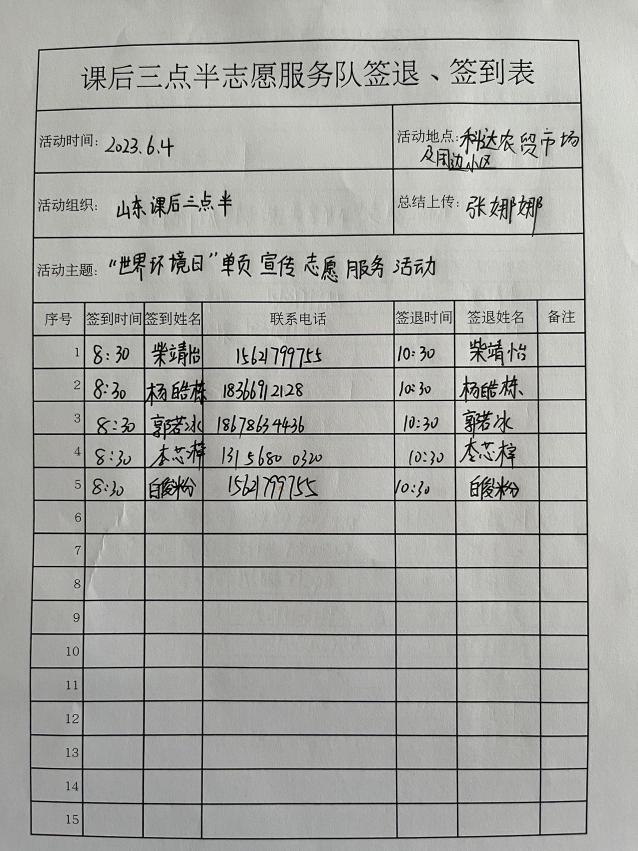 课后三点半志愿服务队签退、签到表
活动时间: 2023.6.4 活动地点: 科达农贸市场
及周边小区
活动组织: 山东课后三点半 总结上传: 张娜娜
活动主题: “世界环境日”单页宣传志愿服务活动
序号 签到时间 签到姓名 联系电话 签退时间 签退姓名 备注
1 8:30 柴靖怡 15621799755 10:30 柴靖怡
2 8:30 杨皓栋 18366912128 10:30 杨皓栋
3 8:30 郭若冰 18678634436 10:30 郭若冰
4 8:30 李芯梓 131 5680 0320 10:30 李芯梓
5 8:30 15621799755 10:30
6
7
8
9
10
11
12
13
14
15